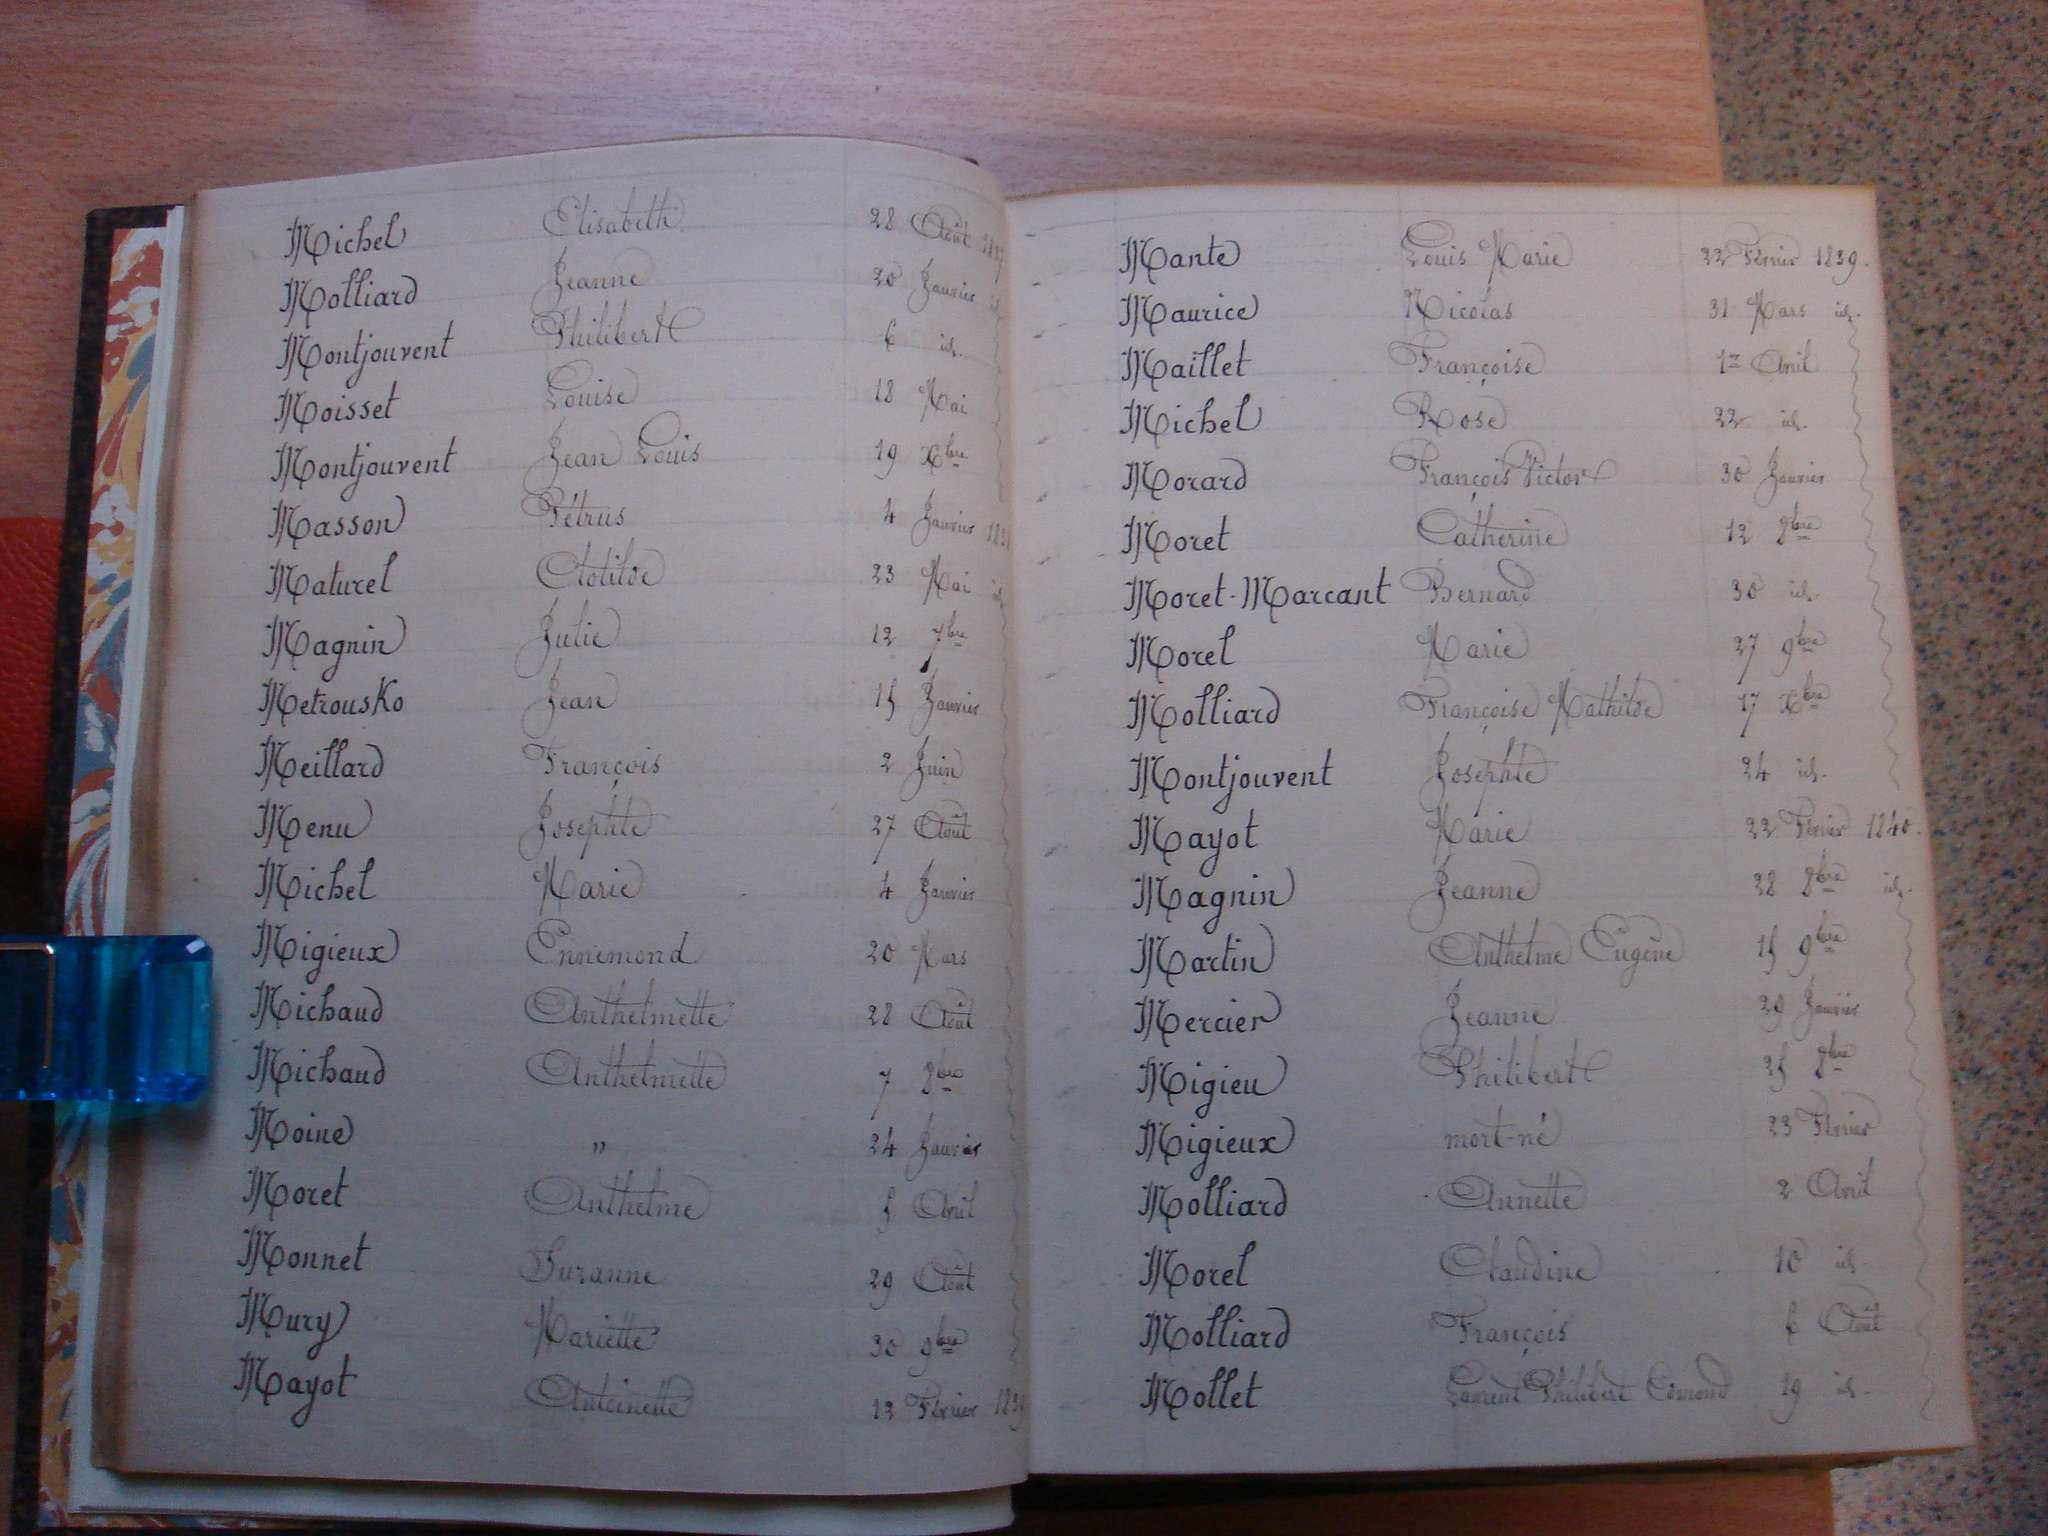 Michel Elisabeth 28 Août 1837
Molliard Jeanne 20 Janvier id.
Montjouvent Philibert 6 id.
Moisset Louise 18 Mai
Montjouvent Jean Louis 19 Xbre
Masson Pétrus 4 Janvier
Maturel Clotilde 23 Mai id.
Magnin Julie 12 7bre
Metrousko Jean 15 Janvier
Meillard François 2 Juin
Menu Josephte 27 Août
Michel Marie 4 Janvier
Migieux Ennemond 20 Mars
Michaud Anthelmette 28 Août
Michaud Anthelmette 7 8bre
Moine " 24 Janvier
Moret Anthelme 5 Avril
Monnet Suzanne 29 Août
Mury Mariette 30 9bre
Mayot Antoinette 12 Février 1839
Mante Louis Marie 22 Février 1839.
Maurice Nicolas 31 Mars id.
Maillet Françoise 1er Avril
Michel Rose 22 id.
Morard François Victor 30 Janvier
Moret Catherine 12 8bre
Moret-Marcant Bernard 30 id.
Morel Marie 27 9bre
Molliard Françoise Mathilde 17 Xbre
Montjouvent Josephte 24 id.
Mayot Marie 22 Février 1840.
Magnin Jeanne 28 8bre id.
Martin Anthelme Eugène 15 9bre
Mercier Jeanne 29 Janvier
Migieu Philibert 25 8bre
Migieux mort-né 23 Février
Molliard Annette 2 Avril
Morel Claudine 10 id.
Molliard François 6 Août
Mollet Laurent Philibert Edmond 19 id.